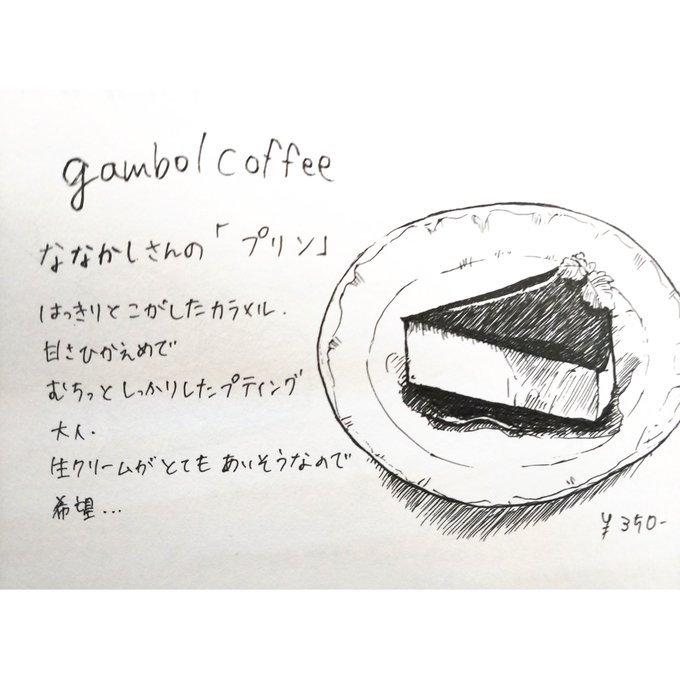 gambol coffee
ななかしさんの「プリン」
はっきりとこがしたカラメル.
甘さひかえめで
むちっとしっかりしたプティング
大人.
生クリームがとてもあいそうなので
希望...
¥350-